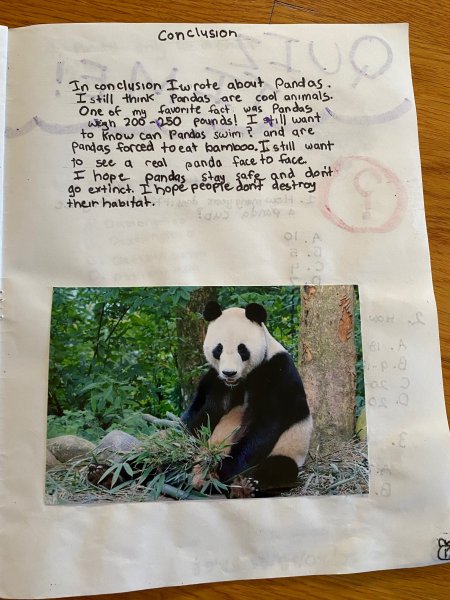 Conclusion
In conclusion I wrote about Pandas.
I still think Pandas are cool animals.
One of my favorite fact was Pandas
weigh 200-250 pounds! I still want
to know can Pandas swim? and are
pandas forced to eat bamboo. I still want
to see a real panda face to face.
I hope pandas stay safe and don't
go extinct. I hope people don't destroy
their habitat.